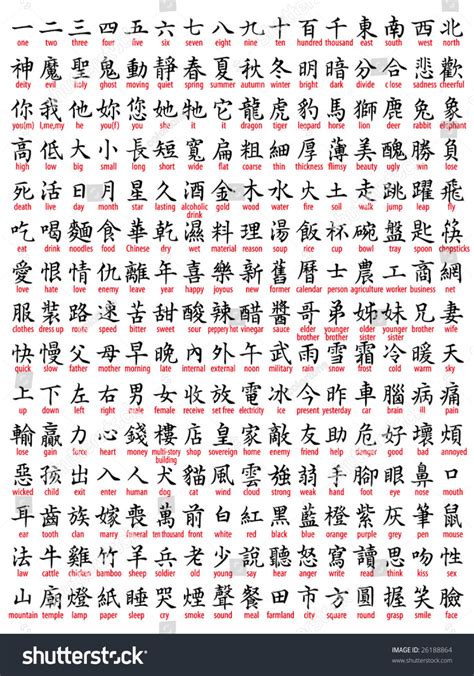 一 二 三 四 五 六 七 八 九 十 百 千 東 南 西 北
one two three four five six seven eight nine ten hundred thousand east south west north
神 魔 聖 鬼 動 靜 春 夏 秋 冬 明 暗 分 合 悲 歡
deity evil holy ghost moving quiet spring summer autumn winter bright dim divide close sadness cheerful
你 我 他 她 您 她 牠 它 龍 虎 豹 馬 獅 鹿 兔 象
you(m) I,me,my he you(f) you she it it dragon tiger leopard horse lion deer rabbit elephant
高 低 大 小 長 短 寬 扁 粗 細 厚 薄 美 醜 勝 負
high low big small long short wide flat coarse thin thick flimsy beauty ugly win lose
死 活 日 月 星 久 酒 金 木 水 火 土 走 跳 躍 飛
death live day month star lasting alcoholic drink gold wood water fire soil walk jump leap fly
吃 喝 麵 食 華 乾 濕 料 理 湯 飯 杯 碗 盤 匙 筷
eat drink noodles food Chinese dry wet material reason soup rice cup bowl tray spoon chopsticks
愛 恨 情 仇 離 年 喜 樂 新 舊 曆 士 農 工 商 網
love hate love enemy leave year happy joyful new former calendar person agriculture worker business net
服 裝 路 速 苦 甜 酸 辣 醋 醬 哥 弟 姊 妹 兄 妻
clothes dress up route speed bitter sweet sour peppery hot vinegar sauce elder brother younger brother elder sister younger sister brother wife
快 慢 父 母 早 晚 內 外 午 武 雨 雪 霜 冷 暖 天
quick slow father mother morning late internal external noon military rain snow frost cold warm sky
上 下 左 右 男 女 收 放 電 冰 今 昨 車 腦 病 痛
up down left right male female receive set free electricity ice present yesterday car brain ill pain
輸 贏 力 心 錢 樓 店 皇 家 敵 友 助 危 好 壞 煩
lose gain force heart money multi-story building shop sovereign home enemy friend help danger good bad annoyed
惡 孩 出 入 人 犬 貓 風 雲 強 弱 手 腳 眼 鼻 口
wicked child exit enter human dog cat wind cloud strong weak hand foot eye nose mouth
耳 齒 族 嫁 喪 萬 前 白 紅 黑 藍 橙 紫 灰 筆 鼠
ear tooth clan marry funeral ten thousand front white red black blue orange purple grey pen mouse
法 牛 雞 竹 羊 兵 老 少 說 聽 怒 寫 讀 思 吻 性
law cattle chicken bamboo sheep soldier old young say hear anger write read think kiss sex
山 廟 燈 紙 睡 哭 煙 聲 餐 田 市 方 圓 握 笑 臉
mountain temple lamp paper sleep cry smoke sound meal farmland city square round grasp smile face
shutterstock
IMAGE ID: 26188864
www.shutterstock.com